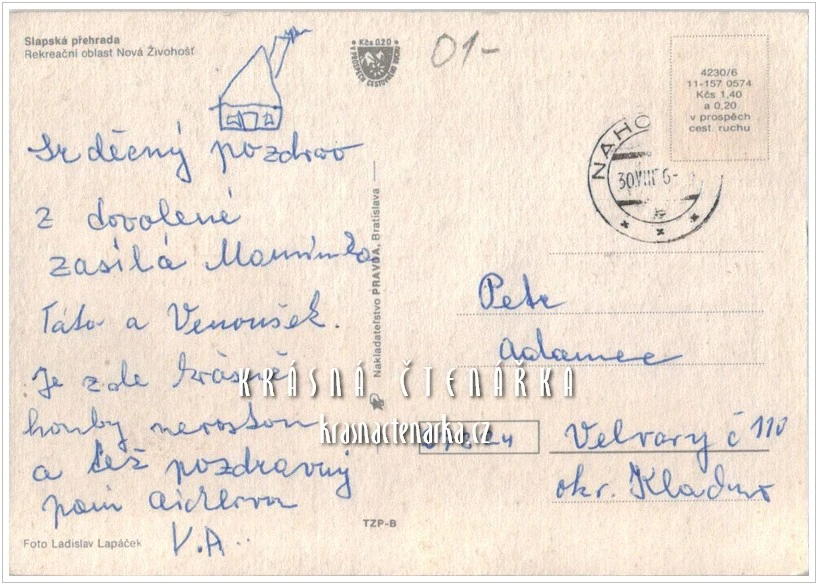 Slapská přehrada
Rekreační oblast Nová Živohošť
Kčs 0.20
V PROSPĚCH CESTOVNÍHO RUCHU
01-
4230/6
11-157 0574
Kčs 1,40
a 0,20
v prospěch
cest. ruchu
NAHO
30.VIII
Srděčný pozdrav
z dovolené
zasílá Maminka
Táta a Venoušek.
Je zde krásně
houby nerostou
a též pozdravuj
paní
V.A.
Nakladatelstvo PRAVDA, Bratislava
Petr
Adamec
Velvary č 110
okr. Kladno
KRÁSNÁ ČTENÁŘKA
krasnactenarka.cz
TZP-B
Foto Ladislav Lapáček